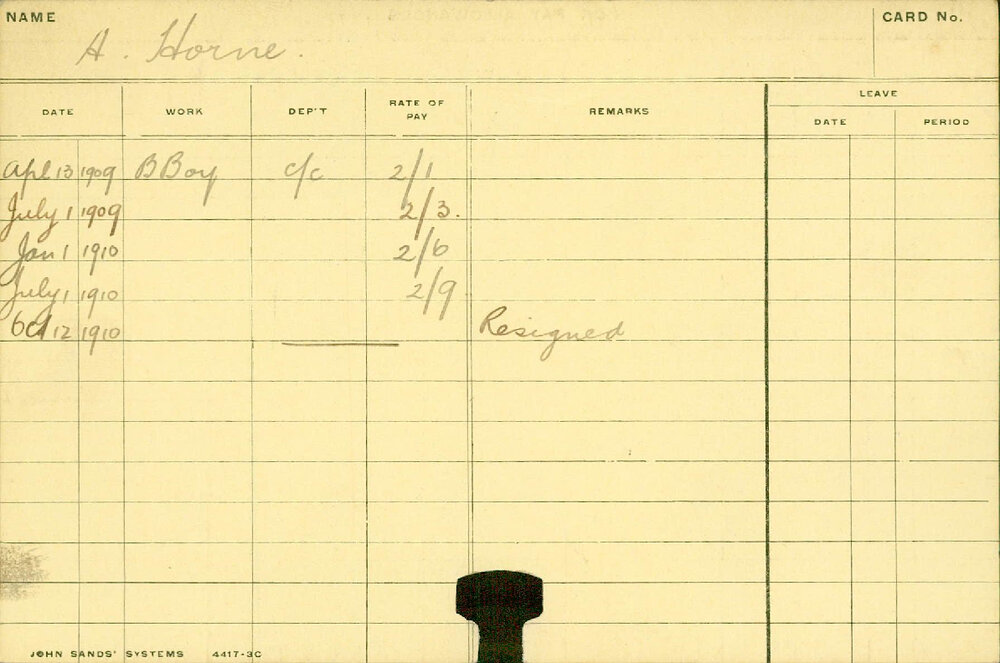 NAME
CARD No.
A. Horne.
DATE WORK DEP'T RATE OF PAY REMARKS LEAVE
DATE PERIOD
Apl 13 1909 B Boy c/c 2/1
July 1 1909 2/3.
Jan 1 1910 2/6
July 1 1910 2/9
Oct 12 1910 Resigned
JOHN SANDS' SYSTEMS 4417-3C